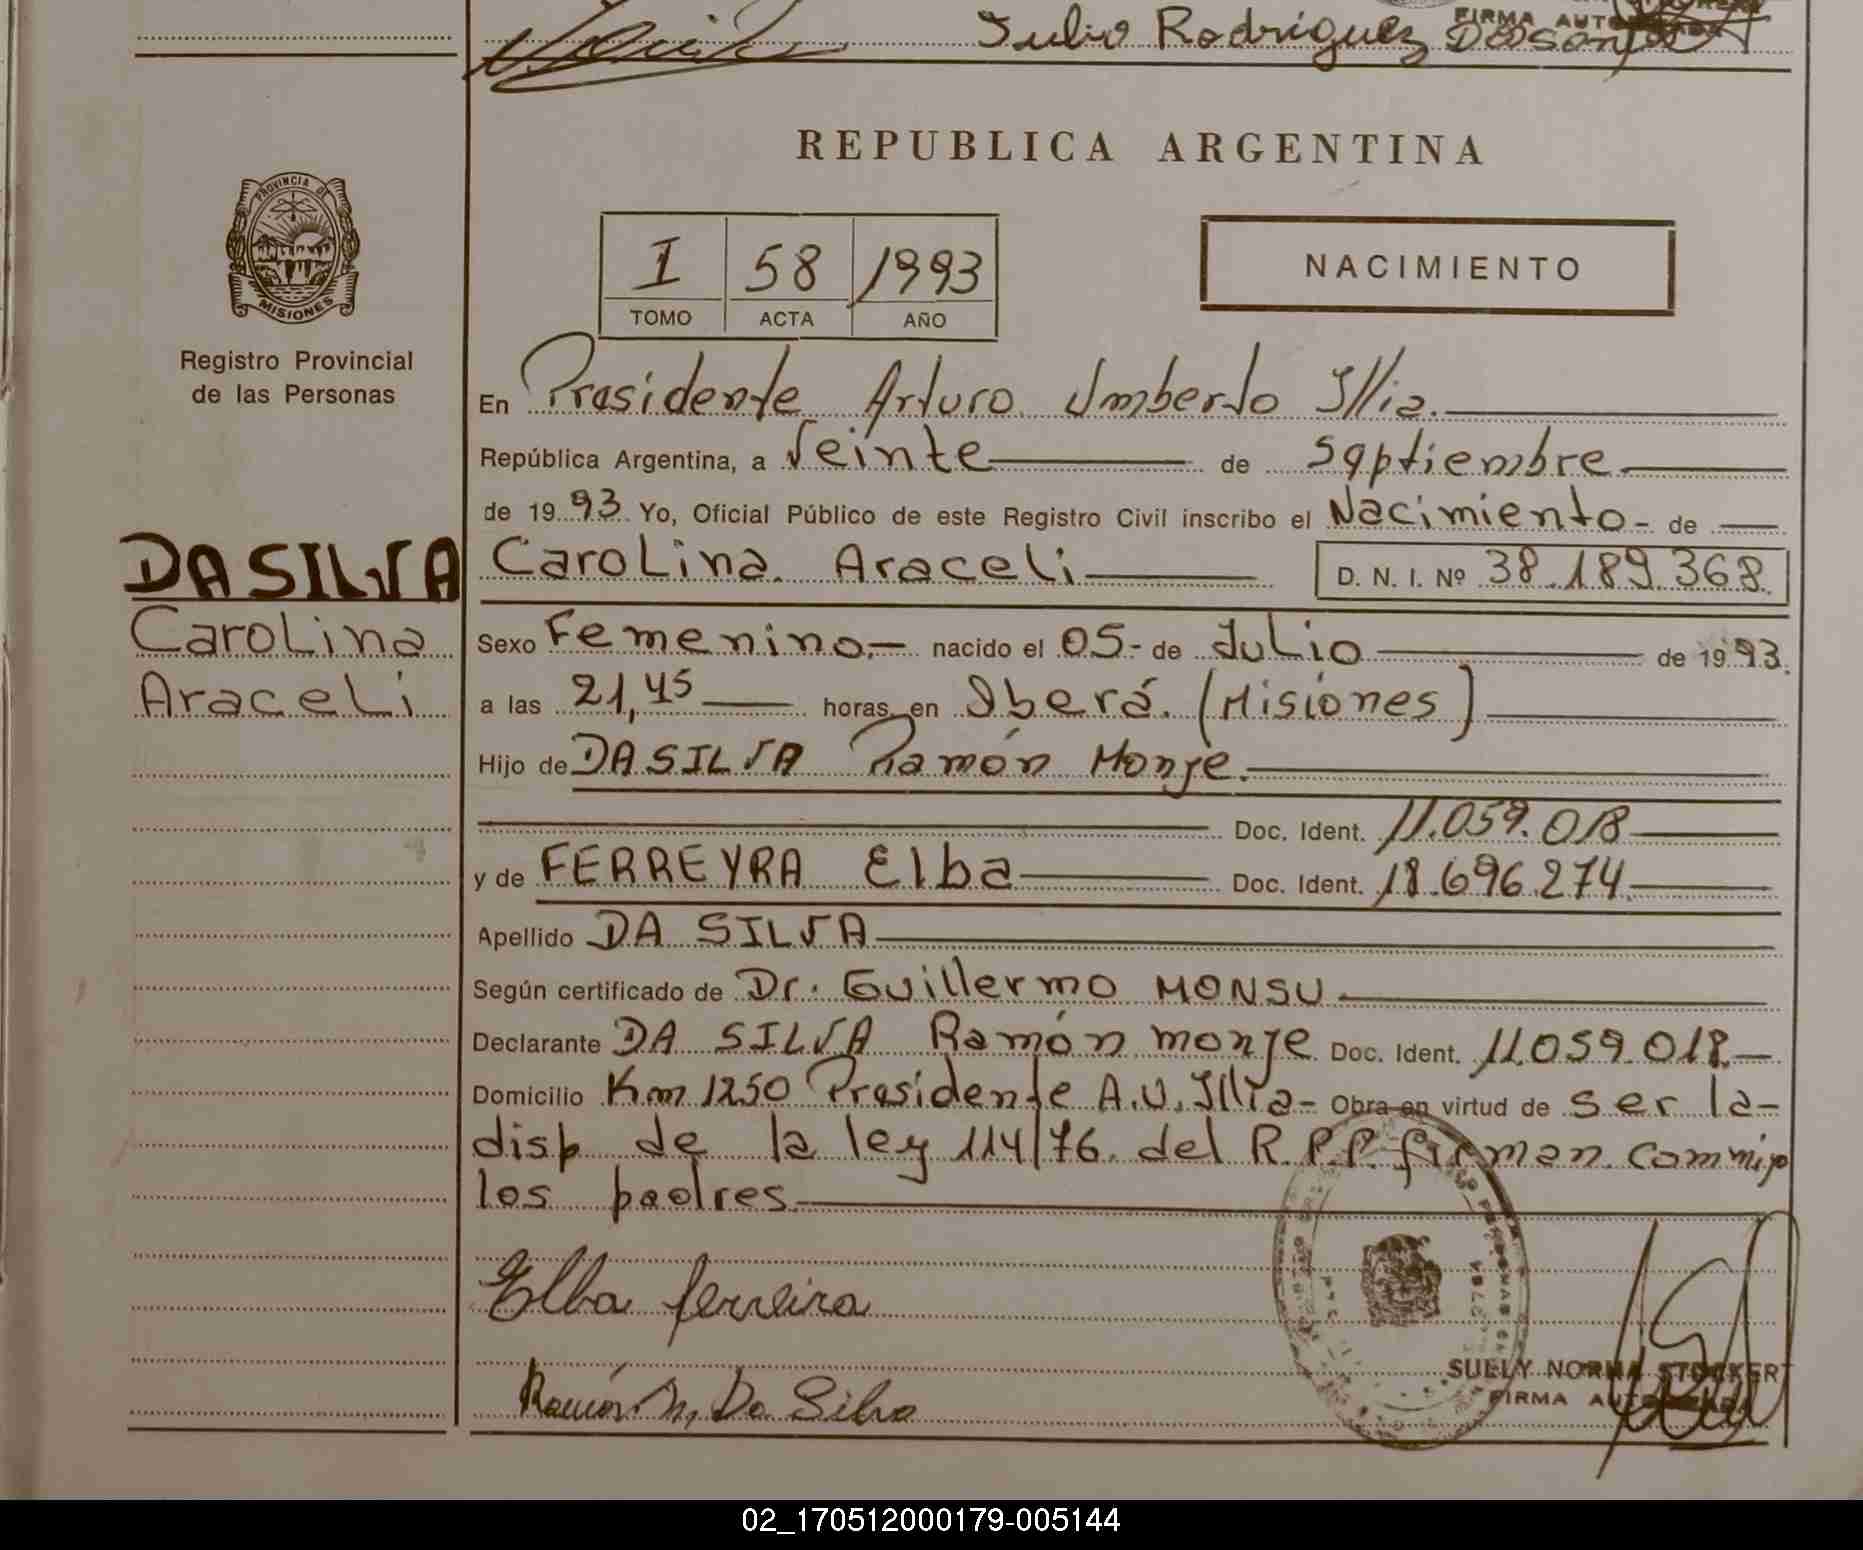 Julio Rodriguez Dasons
FIRMA AUTO
REPUBLICA ARGENTINA
PROVINCIA DE
MISIONES
I 58 1993
TOMO ACTA AÑO
NACIMIENTO
Registro Provincial
de las Personas
En Presidente Arturo Umberto Illia.
República Argentina, a Veinte de septiembre
de 1993 Yo, Oficial Público de este Registro Civil inscribo el Nacimiento- de
DA SILVA
Carolina
Araceli
Carolina Araceli D. N. I. Nº 38.189.368.
Sexo Femenino.- nacido el 05- de Julio de 1993.
a las 21,45 horas en Iberá. (Misiones)
Hijo de DA SILVA Ramón Monje.
Doc. Ident. 11.059.018
y de FERREYRA Elba Doc. Ident. 18.696.274
Apellido DA SILVA
Según certificado de Dr. Guillermo MONSU
Declarante DA SILVA Ramón monje Doc. Ident. 11.059.018.-
Domicilio Km 1250 Presidente A.U. Illia- Obra en virtud de ser la-
disp de la ley 114/76 del R.P.P. firman commigo
los padres
Elba ferreira
Ramón M, Da Silva
SULLY NORMA STOCKERT
FIRMA AUTORIZADA
02_170512000179-005144